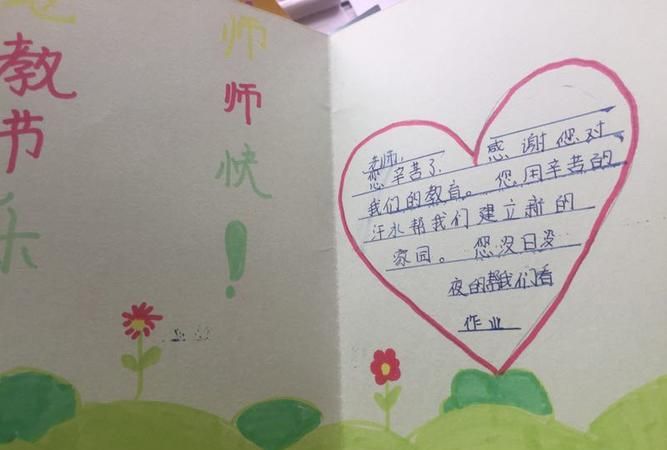 师
教师
节快
乐！
老师，
您辛苦了 感谢您对
我们的教育。您用辛苦的
汗水帮我们建立新的
家园。您没日没
夜的帮我们看
作业